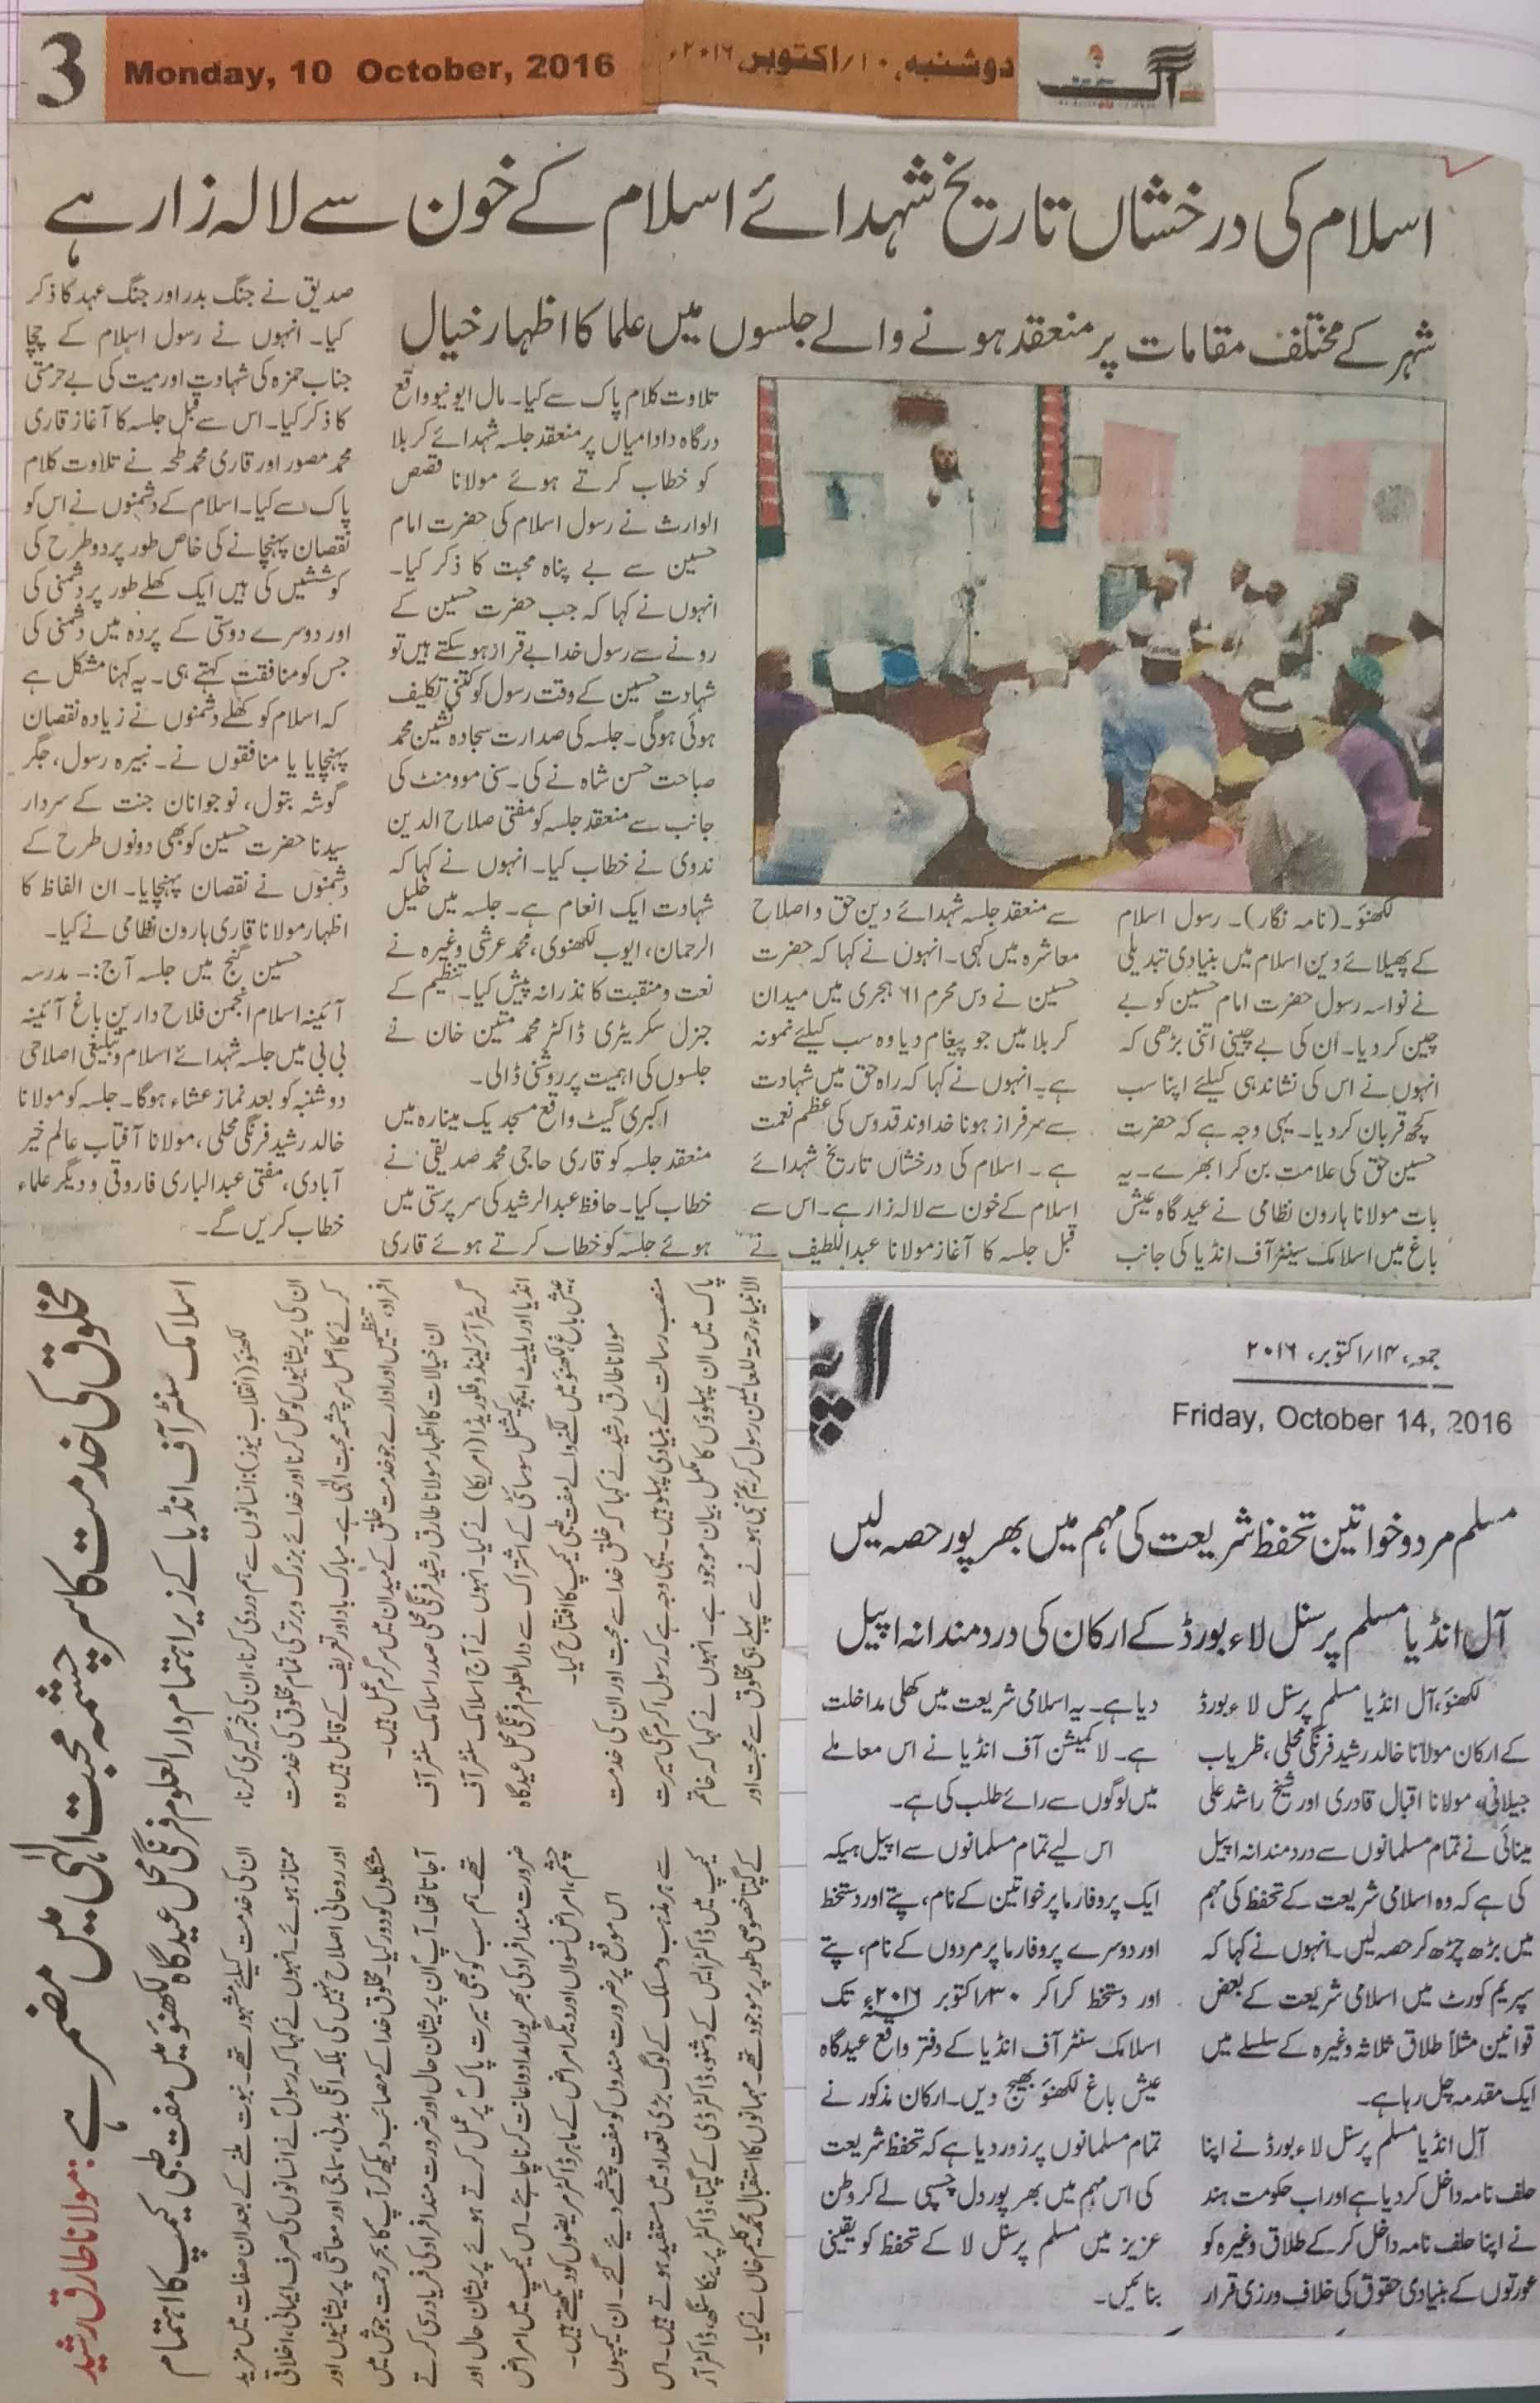 3
Monday, 10 October, 2016
دوشنبہ، ۱۰/اکتوبر، ۲۰۱۶ء
آگ
اسلام کی درخشاں تاریخ شہدائے اسلام کے خون سے لالہ زار ہے
شہر کے مختلف مقامات پر منعقد ہونے والے جلسوں میں علما کا اظہار خیال
لکھنؤ۔ (نامہ نگار)۔ رسول اسلام
کے پھیلائے دین اسلام میں بنیادی تبدیلی
نے نواسہ رسول حضرت امام حسین کو بے
چین کر دیا۔ ان کی بے چینی اتنی بڑھی کہ
انہوں نے اس کی نشاندہی کیلئے اپنا سب
کچھ قربان کر دیا۔ یہی وجہ ہے کہ حضرت
حسین حق کی علامت بن کر ابھرے۔ یہ
بات مولانا ہارون نظامی نے عیدگاہ عیش
باغ میں اسلامک سینٹر آف انڈیا کی جانب
سے منعقد جلسہ شہدائے دین حق و اصلاح
معاشرہ میں کہی۔ انہوں نے کہا کہ حضرت
حسین نے دس محرم ۶۱ ہجری میں میدان
کربلا میں جو پیغام دیا وہ سب کیلئے نمونہ
ہے۔ انہوں نے کہا کہ راہ حق میں شہادت
سے سرفراز ہونا خداوند قدوس کی عظیم نعمت
ہے۔ اسلام کی درخشاں تاریخ شہدائے
اسلام کے خون سے لالہ زار ہے۔ اس سے
قبل جلسہ کا آغاز مولانا عبداللطیف نے
تلاوت کلام پاک سے کیا۔ مال ایونیو واقع
درگاہ دادا میاں پر منعقد جلسہ شہدائے کربلا
کو خطاب کرتے ہوئے مولانا قصص
الوارث نے رسول اسلام کی حضرت امام
حسین سے بے پناہ محبت کا ذکر کیا۔
انہوں نے کہا کہ جب حضرت حسین کے
رونے سے رسول خدا بے قرار ہو سکتے ہیں تو
شہادت حسین کے وقت رسول کو کتنی تکلیف
ہوئی ہوگی۔ جلسہ کی صدارت سجادہ نشین محمد
صباحت حسن شاہ نے کی۔ سنی موومنٹ کی
جانب سے منعقد جلسہ کو مفتی صلاح الدین
ندوی نے خطاب کیا۔ انہوں نے کہا کہ
شہادت ایک انعام ہے۔ جلسہ میں خلیل
الرحمان، ایوب لکھنوی، محمد عرشی وغیرہ نے
نعت و منقبت کا نذرانہ پیش کیا۔ تنظیم کے
جنرل سکریٹری ڈاکٹر محمد متین خان نے
جلسوں کی اہمیت پر روشنی ڈالی۔
اکبری گیٹ واقع مسجد یک مینارہ میں
منعقد جلسہ کو قاری حاجی محمد صدیقی نے
خطاب کیا۔ حافظ عبدالرشید کی سرپرستی میں
ہوئے جلسہ کو خطاب کرتے ہوئے قاری
صدیق نے جنگ بدر اور جنگ عہد کا ذکر
کیا۔ انہوں نے رسول اسلام کے چچا
جناب حمزہ کی شہادت اور میت کی بے حرمتی
کا ذکر کیا۔ اس سے قبل جلسہ کا آغاز قاری
محمد مصور اور قاری محمد طحہ نے تلاوت کلام
پاک سے کیا۔ اسلام کے دشمنوں نے اس کو
نقصان پہنچانے کی خاص طور پر دو طرح کی
کوششیں کی ہیں ایک کھلے طور پر دشمنی کی
اور دوسرے دوستی کے پردہ میں دشمنی کی
جس کو منافقت کہتے ہی۔ یہ کہنا مشکل ہے
کہ اسلام کو کھلے دشمنوں نے زیادہ نقصان
پہنچایا یا منافقوں نے۔ نبیرہ رسول، جگر
گوشہ بتول، نوجوانان جنت کے سردار
سیدنا حضرت حسین کو بھی دونوں طرح کے
دشمنوں نے نقصان پہنچایا۔ ان الفاظ کا
اظہار مولانا قاری ہارون نظامی نے کیا۔
حسین گنج میں جلسہ آج:۔ مدرسہ
آئینہ اسلام انجمن فلاح دارین باغ آئینہ
بی بی میں جلسہ شہدائے اسلام و تبلیغی اصلاحی
دوشنبہ کو بعد نماز عشاء ہوگا۔ جلسہ کو مولانا
خالد رشید فرنگی محلی، مولانا آفتاب عالم خیر
آبادی، مفتی عبدالباری فاروقی و دیگر علماء
خطاب کریں گے۔
مخلوق کی خدمت کا سرچشمہ محبت الٰہی میں مضمر ہے: مولانا طارق رشید
اسلامک سنٹر آف انڈیا کے زیر اہتمام دارالعلوم فرنگی محل عیدگاہ لکھنؤ میں مفت طبی کیمپ کا اہتمام
لکھنؤ (انقلاب نیوز): انسانوں سے ہم دردی کرنا، ان کی خبر گیری کرنا،
ان کی پریشانیوں کو حل کرنا اور خدائے بزرگ و برتر کی تمام مخلوق کی خدمت
کرنے کا اصل سرچشمہ محبت الٰہی ہے۔ مبارک باد اور تعریف کے قابل ہیں وہ
افراد، تنظیمیں اور ادارے جو خدمت خلق کے میدان میں سرگرم عمل ہیں۔
ان خیالات کا اظہار مولانا طارق رشید فرنگی محلی صدر اسلامک سنٹر آف
گریٹر آئرلینڈ و فلوریڈا (امریکا) نے کیا۔ انہوں نے آج اسلامک سنٹر آف
انڈیا اور ایلیٹ ایجوکیشنل سوسائٹی کے اشتراک سے دارالعلوم فرنگی محل عیدگاہ
عیش باغ لکھنؤ میں لگنے والے مفت طبی کیمپ کا افتتاح کیا۔
مولانا طارق رشید نے کہا کہ خلق خدا سے محبت اور ان کی خدمت
منصب رسالت کے بنیادی پہلو ہیں۔ یہی وجہ ہے کہ رسول اکرمؐ کی سیرت
پاک میں ان پہلوؤں کا مکمل بیان موجود ہے۔ انہوں نے کہا کہ خاتم
الانبیاء رحمۃ للعالمین رسول کریمؐ نبی ہونے سے پہلے ہی مخلوق سے محبت اور
ان کی خدمت کیلئے مشہور تھے۔ نبوت ملنے کے بعد ان صفات میں مزید
ممتاز ہوئے۔ انہوں نے کہا کہ رسولؐ نے انسانوں کی صرف ایمانی، اخلاقی
اور روحانی اصلاح نہیں کی بلکہ انکی بدنی، سماجی اور معاشی پریشانیوں اور
مشکلوں کو دور کیا۔ مخلوق خدا کے مصائب دیکھ کر آپؐ کا بحر رحمت جوش میں
آجاتا تھا۔ آپؐ ان پریشان حال اور ضرورت مند افراد کی فریاد ری کرتے
تھے۔ ہم سب کو بھی سیرت پاکؐ پر عمل کرتے ہوئے پریشان حال اور
ضرورت مند افراد کی بھرپور امداد و اعانت کرنا چاہئے۔ اس کیمپ میں امراض
چشم، امراض نسواں اور دیگر امراض کے ماہر ڈاکٹر مریضوں کو دیکھتے ہیں۔
اس موقع پر ضرورت مندوں کو مفت چشمے دیئے گئے۔ ان کیمپوں
سے ہر مذہب و مسلک کے لوگ بڑی تعداد میں مستفید ہوتے ہیں۔ اس
کیمپ میں ڈاکٹر ایس کے وشنو، ڈاکٹر ڈی کے گپتا، ڈاکٹر پرینکا سنگھ، ڈاکٹر آر
کے گپتا خصوصی طور پر موجود تھے۔ مہمانوں کا استقبال محمد کلیم خاں نے کیا۔
جمعہ، ۱۴/اکتوبر، ۲۰۱۶
Friday, October 14, 2016
مسلم مرد و خواتین تحفظ شریعت کی مہم میں بھرپور حصہ لیں
آل انڈیا مسلم پرسنل لاء بورڈ کے ارکان کی دردمندانہ اپیل
لکھنؤ، آل انڈیا مسلم پرسنل لاء بورڈ
کے ارکان مولانا خالد رشید فرنگی محلی، ظفریاب
جیلانی، مولانا اقبال قادری اور شیخ راشد علی
مینائی نے تمام مسلمانوں سے دردمندانہ اپیل
کی ہے کہ وہ اسلامی شریعت کے تحفظ کی مہم
میں بڑھ چڑھ کر حصہ لیں۔ انہوں نے کہا کہ
سپریم کورٹ میں اسلامی شریعت کے بعض
قوانین مثلاً طلاق ثلاثہ وغیرہ کے سلسلے میں
ایک مقدمہ چل رہا ہے۔
آل انڈیا مسلم پرسنل لاء بورڈ نے اپنا
حلف نامہ داخل کر دیا ہے اور اب حکومت ہند
نے اپنا حلف نامہ داخل کر کے طلاق وغیرہ کو
عورتوں کے بنیادی حقوق کی خلاف ورزی قرار
دیا ہے۔ یہ اسلامی شریعت میں کھلی مداخلت
ہے۔ لا کمیشن آف انڈیا نے اس معاملے
میں لوگوں سے رائے طلب کی ہے۔
اس لیے تمام مسلمانوں سے اپیل ہیکہ
ایک پروفارما پر خواتین کے نام، پتے اور دستخط
اور دوسرے پروفارما پر مردوں کے نام، پتے
اور دستخط کرا کر ۳۰/اکتوبر ۲۰۱۶ء تک
اسلامک سنٹر آف انڈیا کے دفتر واقع عیدگاہ
عیش باغ لکھنؤ بھیج دیں۔ ارکان مذکور نے
تمام مسلمانوں پر زور دیا ہے کہ تحفظ شریعت
کی اس مہم میں بھرپور دل چسپی لے کر وطن
عزیز میں مسلم پرسنل لا کے تحفظ کو یقینی
بنائیں۔